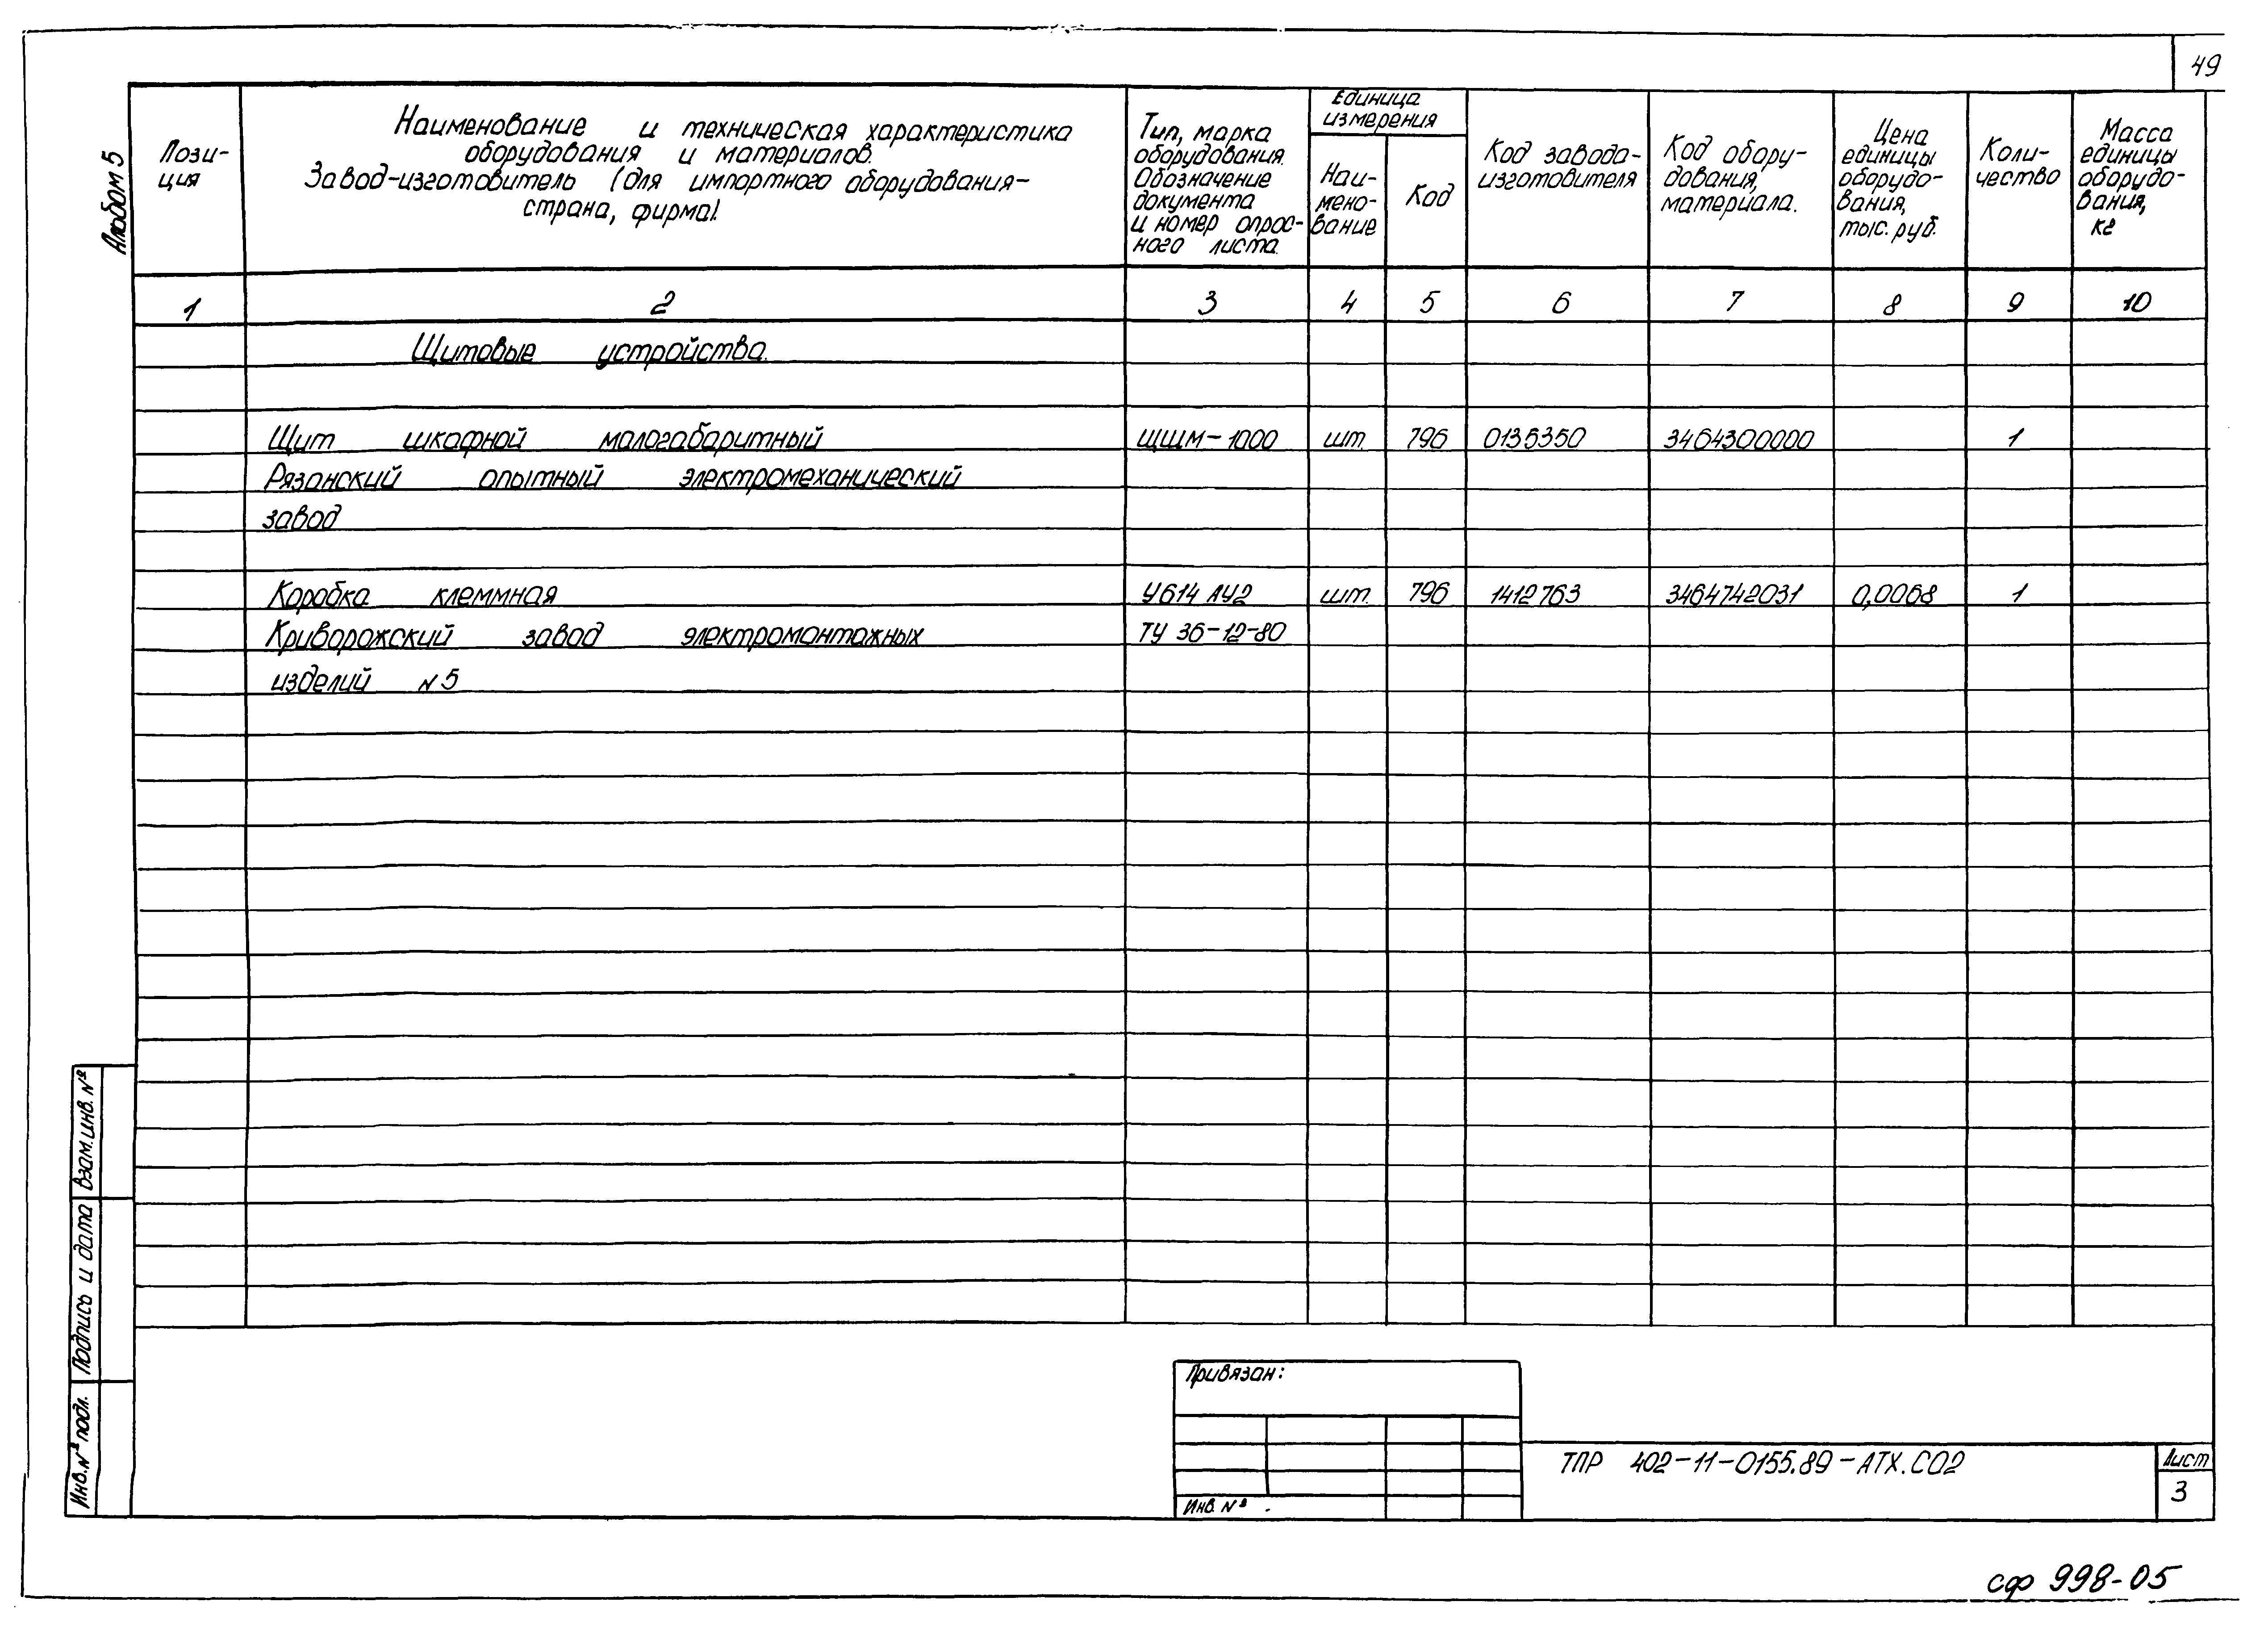 49
Альбом 5
Пози-
ция
Наименование и техническая характеристика
оборудования и материалов.
Завод-изготовитель (для импортного оборудования-
страна, фирма).
Тип, марка
оборудования.
Обозначение
документа
и номер опрос-
ного листа.
Единица
измерения
Наи-
мено-
вание
Код
Код завода-
изготовителя
Код обору-
дования,
материала.
Цена
единицы
оборудо-
вания,
тыс. руб.
Коли-
чество
Масса
единицы
оборудо-
вания,
кг
1 2 3 4 5 6 7 8 9 10
Щитовые устройства.
Щит шкафной малогабаритный ЩШМ-1000 шт. 796 0135350 3464300000 1
Рязанский опытный электромеханический
завод
Коробка клеммная У614 АУ2 шт. 796 1412763 3464742031 0,0068 1
Криворожский завод электромонтажных ТУ 36-12-80
изделий N 5
Взам. инв. №
Подпись и дата
Инв. № подл.
Привязан:
Инв. №
ТПР 402-11-0155.89-АТХ.СО2
Лист
3
сф 998-05